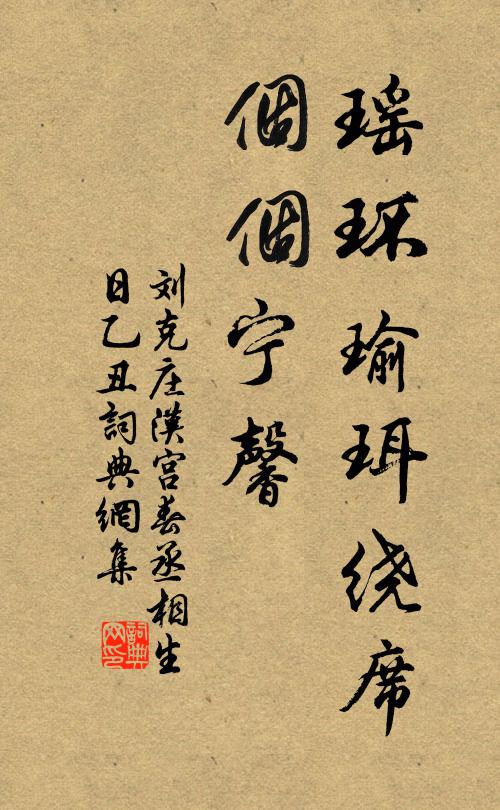 瑶环瑜珥绕席
個個宁馨
刘克庄漢宫春丞相生
日乙丑詞典網集
詞典
网印